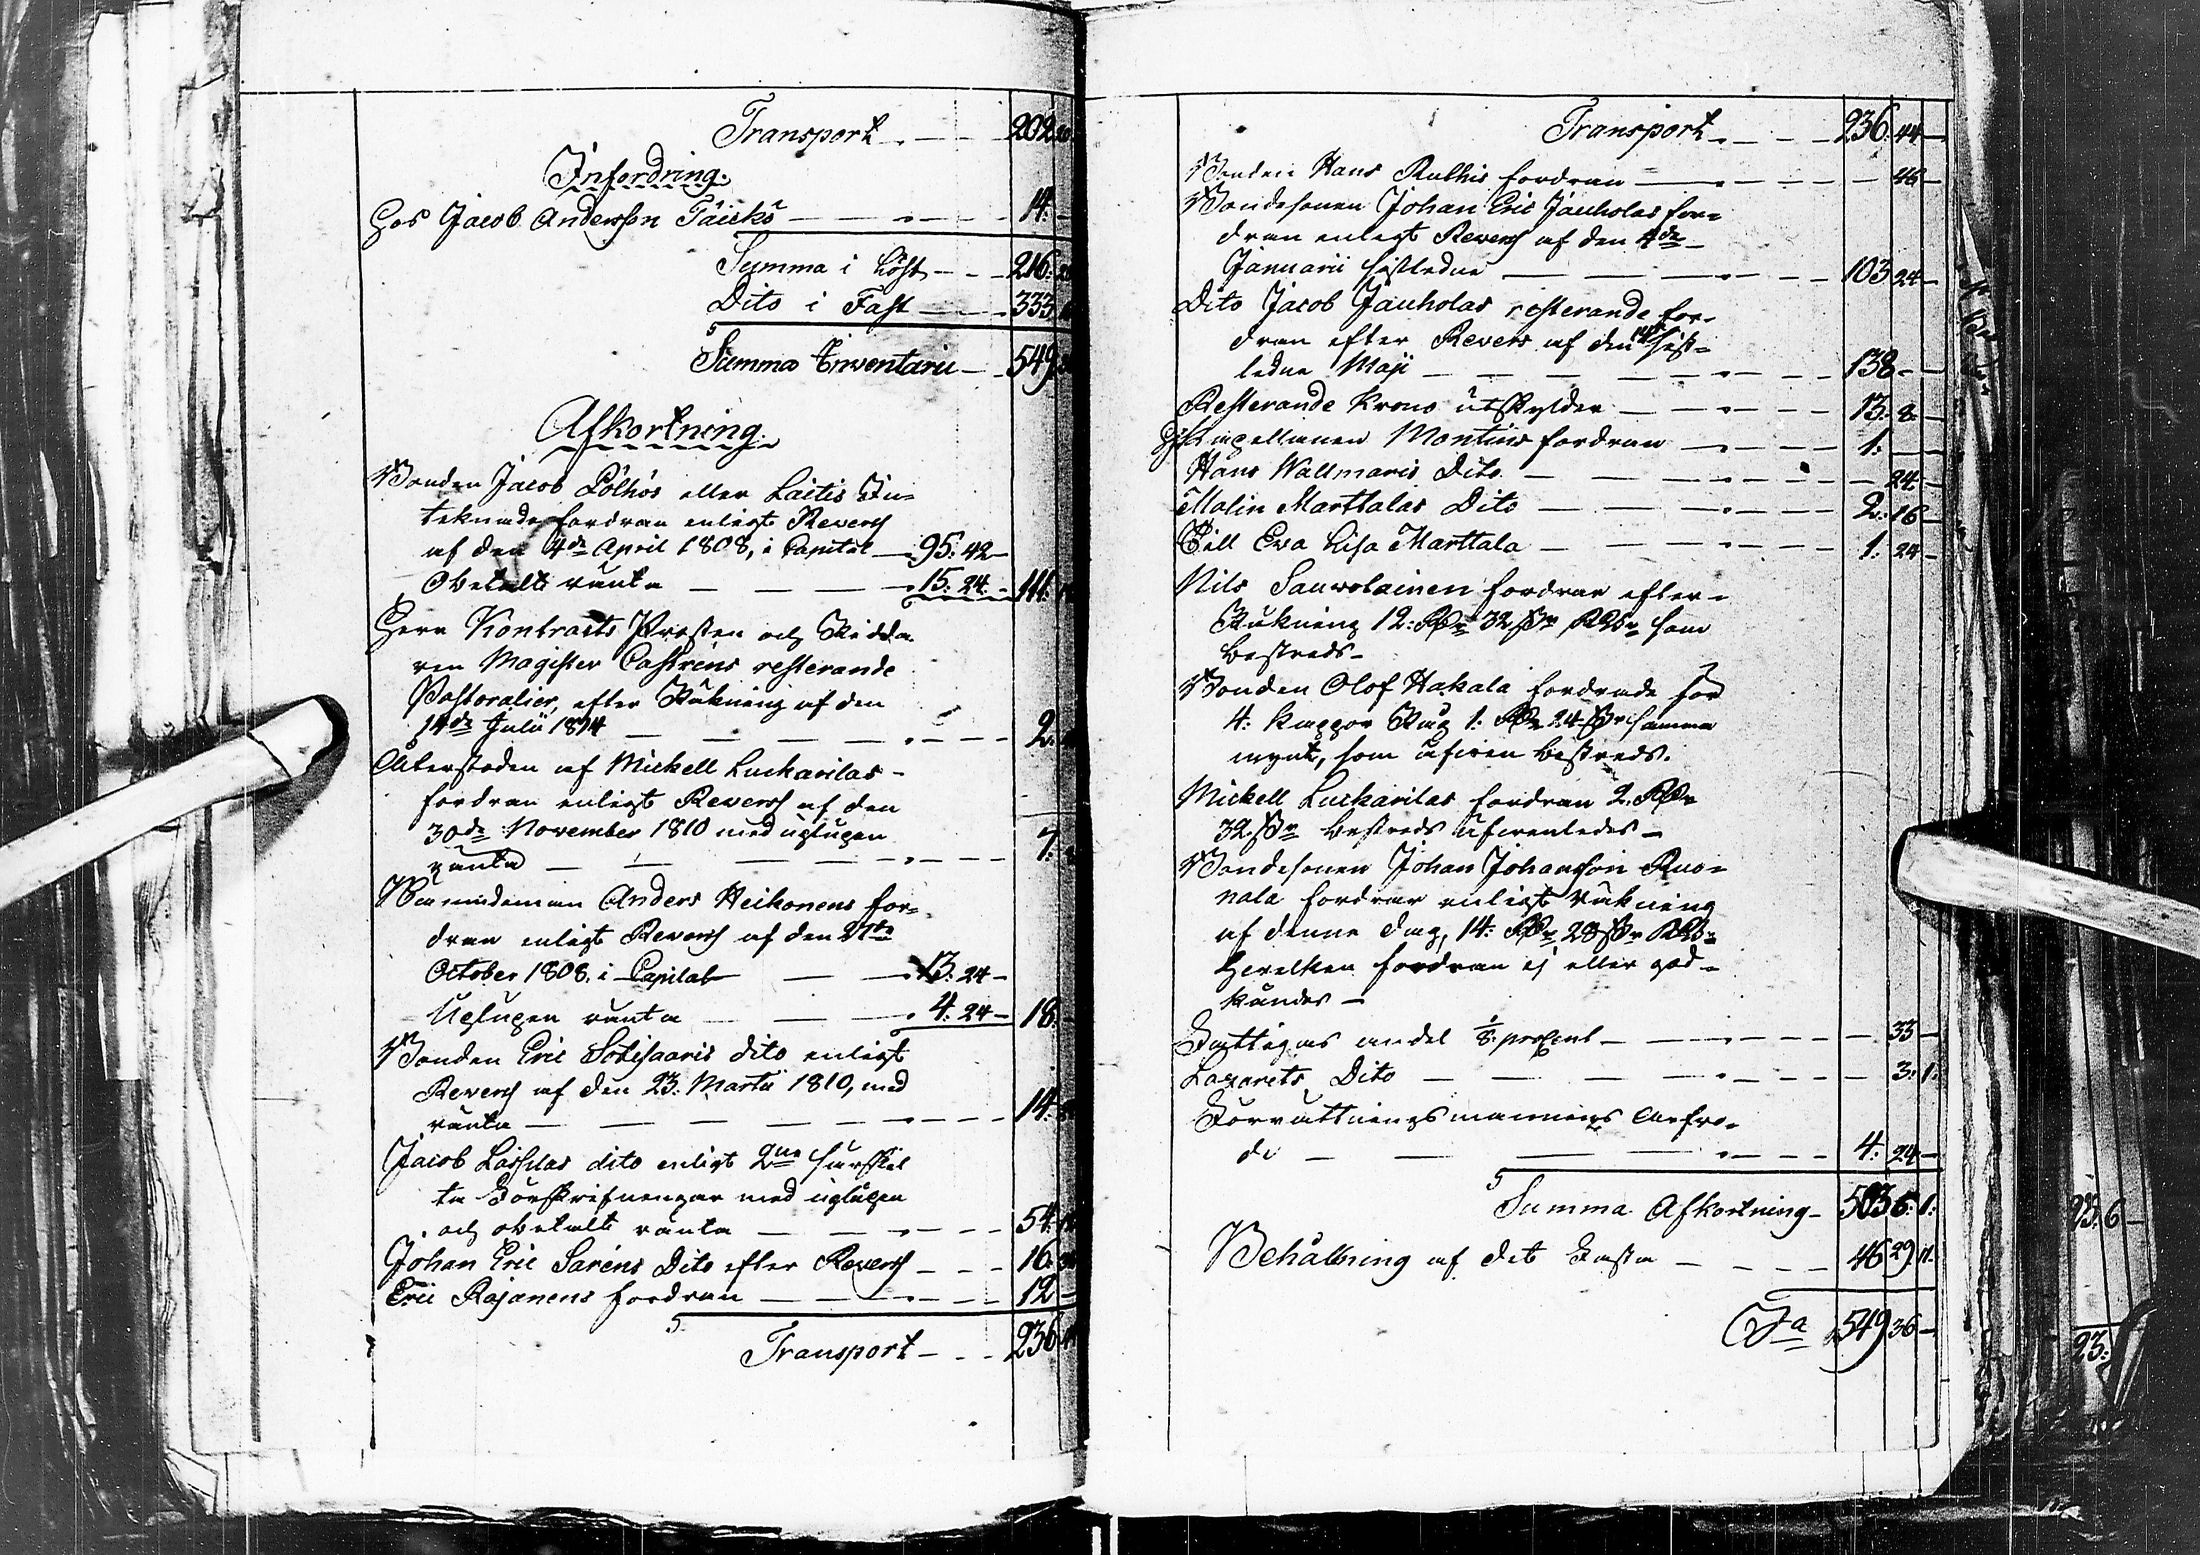 Transport 202
Infordring.
Hos Jacob Andersson Täickö 14.
Summa i Löst 216.
Dito i Fast 333
Summa Inventarii 549
Afkortning.
Bonden Jacob Pölhös eller Laitis In-
teknade fordran enligt Revers
af den 4de April 1808, i Capital 95. 42
Obetalt ränta 15. 24. 111.
Herr Kontracts Prosten och Ridda
ren Magister Castréns resterande
Pastoralier, efter Räkning af den
14de Julii 1814 2.
Återstoden af Mickell Luckarilas
fordran enligt Revers af den
30de November 1810 med uplupen
ränta 7.
Nämndeman Anders Heikonens for-
dran enligt Revers af den 21te
October 1808. i Capital 13. 24
Uplupen ränta 4. 24 18.
Bonden Eric Sotisaaris dito enligt
Revers af den 23. Martii 1810, med
ränta 14.
Jacob Lassilas dito enligt 2ne särskil
ta Förskrifningar med uplupen
och obetalt ränta 54.
Johan Eric Saréns Dito efter Revers 16.
Eric Rajanens fordran 12
Transport 236
Transport 236. 44
Bonden Hans Ruthis fordran 46
Bondesonen Johan Eric Jauholas for-
dran enligt Revers af den 4de
Januarii sistledne 103 24
Dito Jacob Jauholas resterande for-
dran efter Revers af den sist-
ledne Maji 138
Resterande Krono utskylder 13. 8
Capellanen Montins fordran 1.
Hans Wallmaris Dito 24
Malin Marttalas Dito 2. 16
Till Eva Lisa Marttala 1. 24
Nils Sauvolainen fordrar efter
Räkning 12. Rdr 32 sr RGs som
bestreds
Bonden Olof Hakala fordrade för
4. kappor Råg 1. Rdr 24 sr samma
mynt, som äfven bestreds.
Mickell Luckarilas fordran 2. Rdr
32 sr bestreds äfvenledes
Bondesonen Johan Johansson Ruo-
nala fordrar enligt räkning
af denne dag, 14. Rdr 28 sr RGs
hvilken fordran ej eller god-
kändes
Fattigas andel 1/8. procent 33
Lazarets Dito 3. 1.
Förrättningsmannens Arfvo-
de 4. 24
Summa Afkortning 503 6. 1.
Behållning af det Fasta 46 29. 11.
Sa 549 36
23. 6
23.